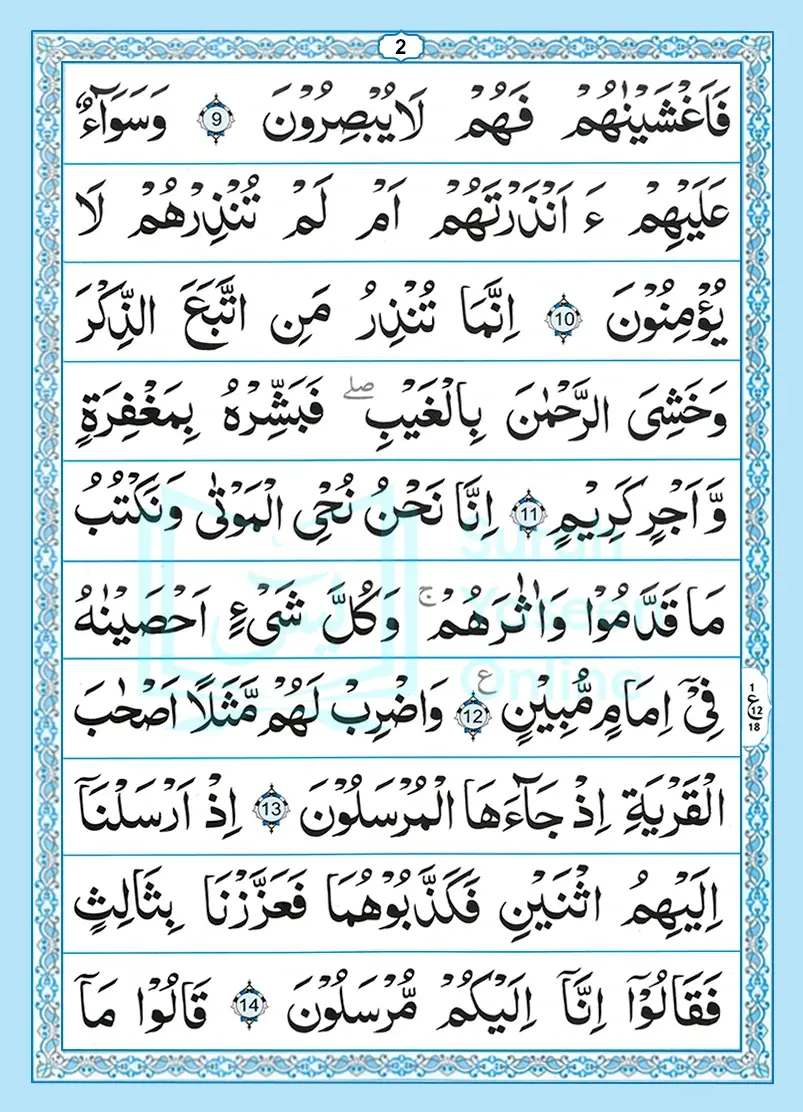 2
فَاَغْشَيْنٰهُمْ فَهُمْ لَا يُبْصِرُوْنَ 9 وَسَوَآءٌ
عَلَيْهِمْ ءَ اَنْذَرْتَهُمْ اَمْ لَمْ تُنْذِرْهُمْ لَا
يُؤْمِنُوْنَ 10 اِنَّمَا تُنْذِرُ مَنِ اتَّبَعَ الذِّكْرَ
وَخَشِىَ الرَّحْمٰنَ بِالْغَيْبِ ۖ فَبَشِّرْهُ بِمَغْفِرَةٍ
وَّ اَجْرٍ كَرِيْمٍ 11 اِنَّا نَحْنُ نُحْىِ الْمَوْتٰى وَنَكْتُبُ
مَا قَدَّمُوْا وَاٰثٰرَهُمْ ۚ وَكُلَّ شَىْءٍ اَحْصَيْنٰهُ
فِىْٓ اِمَامٍ مُّبِيْنٍ 12 ع وَاضْرِبْ لَهُمْ مَّثَلًا اَصْحٰبَ
1 ع 12 18
الْقَرْيَةِ اِذْ جَآءَهَا الْمُرْسَلُوْنَ 13 اِذْ اَرْسَلْنَآ
اِلَيْهِمُ اثْنَيْنِ فَكَذَّبُوْهُمَا فَعَزَّزْنَا بِثَالِثٍ
فَقَالُوْٓا اِنَّآ اِلَيْكُمْ مُّرْسَلُوْنَ 14 قَالُوْا مَآ
يٰسٓ
Surah
Yaseen
Online